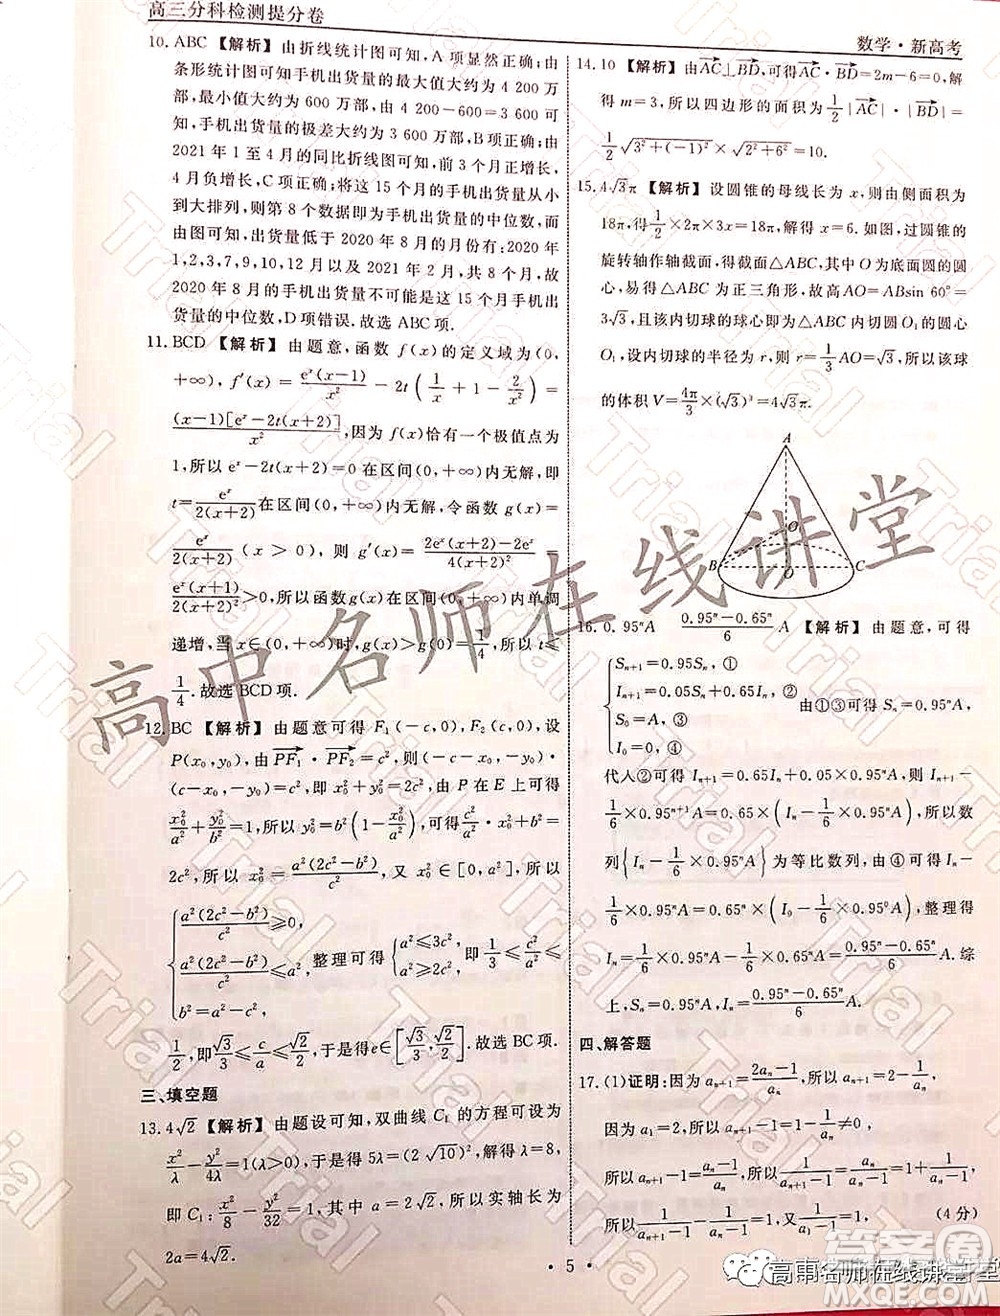 高三分科检测提分卷
数学·新高考
10. ABC 【解析】 由折线统计图可知,A 项显然正确;由
条形统计图可知手机出货量的最大值大约为 4 200 万
部,最小值大约为 600 万部,由 4 200-600=3 600 可
知,手机出货量的极差大约为 3 600 万部,B 项正确;由
2021 年 1 至 4 月的同比折线图可知,前 3 个月正增长,
4 月负增长,C 项正确;将这 15 个月的手机出货量从小
到大排列,则第 8 个数据即为手机出货量的中位数,而
由图可知,出货量低于 2020 年 8 月的月份有:2020 年
1,2,3,7,9,10,11 月以及 2021 年 2 月,共 8 个月,故
2020 年 8 月的手机出货量不可能是这 15 个月手机出
货量的中位数,D 项错误.故选 ABC 项.
11. BCD 【解析】 由题意,函数 f(x)的定义域为(0,
+∞), f′(x)=e^x(x-1)/x² -2t(1/x+1-2/x²)=
(x-1)[e^x-2t(x+2)]/x²,因为 f(x)恰有一个极值点为
1,所以 e^x-2t(x+2)=0 在区间(0,+∞)内无解,即
t=e^x/2(x+2)在区间(0,+∞)内无解,令函数 g(x)=
e^x/2(x+2) (x>0), 则 g′(x)=[2e^x(x+2)-2e^x]/4(x+2)²=
e^x(x+1)/2(x+2)²>0,所以函数 g(x)在区间(0,+∞)内单调
递增,当 x∈(0,+∞)时,g(x)>1/4,所以 t≤
1/4.故选 BCD 项.
12. BC 【解析】 由题意可得 F₁(-c,0),F₂(c,0),设
P(x₀,y₀),由 PF₁·PF₂=c²,则(-c-x₀,-y₀)·
(c-x₀,-y₀)=c²,即 x₀²+y₀²=2c²,由 P 在 E 上可得
x₀²/a²+y₀²/b²=1,所以 y₀²=b²(1-x₀²/a²),所以 x₀²·c²/a²+b²=
2c²,所以 x₀²=a²(2c²-b²)/c²,又 x₀²∈[0,a²],所以
{a²(2c²-b²)/c²≥0,
a²(2c²-b²)/c²≤a²,整理可得{a²≤3c², a²≥2c²,即 1/3≤c²/a²≤
b²=a²-c²,
1/2,即√3/3≤c/a≤√2/2,于是得 e∈[√3/3,√2/2].故选 BC 项.
三、填空题
13. 4√2 【解析】 由题设可知,双曲线 C₁ 的方程可设为
x²/λ-y²/4λ=1(λ>0),于是得 5λ=(2√10)²,解得 λ=8,
即 C₁:x²/8-y²/32=1,其中,a=2√2,所以实轴长为
2a=4√2.
14. 10 【解析】 由AC⊥BD,可得AC·BD=2m-6=0,解
得 m=3,所以四边形的面积为1/2|AC|·|BD|=
1/2√(3²+(-1)²)×√(2²+6²)=10.
15. 4√3π 【解析】 设圆锥的母线长为 x,则由侧面积为
18π,得1/2×2π×3x=18π,解得 x=6.如图,过圆锥的
旋转轴作轴截面,得截面△ABC,其中 O 为底面圆的圆
心,易得△ABC 为正三角形,故高 AO=ABsin 60°=
3√3,且该内切球的球心即为△ABC 内切圆 O₁ 的圆心
O₁,设内切球的半径为 r,则 r=1/3AO=√3,所以该球
的体积 V=4π/3×(√3)³=4√3π.
A
O₁
B O C
16. 0.95ⁿA (0.95ⁿ-0.65ⁿ)/6 A 【解析】 由题意,可得
{Sₙ₊₁=0.95Sₙ,①
Iₙ₊₁=0.05Sₙ+0.65Iₙ,②
S₀=A,③ 由①③可得 Sₙ=0.95ⁿA,
I₀=0,④
代入②可得 Iₙ₊₁=0.05×0.95ⁿA+0.65Iₙ,则 Iₙ₊₁-
1/6×0.95ⁿ⁺¹A=0.65×(Iₙ-1/6×0.95ⁿA),所以数
列{Iₙ-1/6×0.95ⁿA}为等比数列,由④可得 Iₙ-
1/6×0.95ⁿA=0.65ⁿ×(I₀-1/6×0.95⁰A),整理得
Iₙ=1/6×0.95ⁿA-1/6×0.65ⁿA=(0.95ⁿ-0.65ⁿ)/6 A.综
上,Sₙ=0.95ⁿA,Iₙ=(0.95ⁿ-0.65ⁿ)/6 A.
四、解答题
17. (1)证明:因为 aₙ₊₁=(2aₙ-1)/aₙ,所以 aₙ₊₁-1=(aₙ-1)/aₙ.
因为 a₁=2,所以 aₙ-1≠0,
所以 1/(aₙ₊₁-1)=aₙ/(aₙ-1),所以 1/(aₙ₊₁-1)=aₙ/(aₙ-1)=1+1/(aₙ-1),
所以 1/(aₙ₊₁-1)-1/(aₙ-1)=1.又 1/(a₁-1)=1, (4 分)
· 5 ·
高中名师在线讲堂
Trial
答案圈